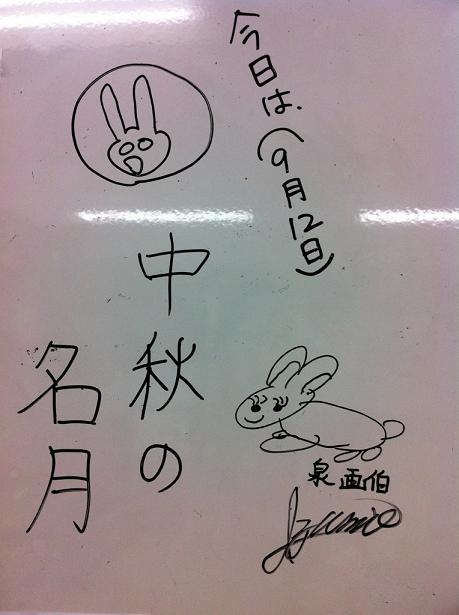 今日は、(9月12日)
中秋の
名月
泉画伯